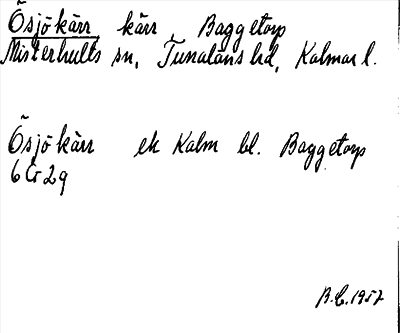 Ösjökärr kärr Baggetorp
Misterhults sn, Tunaläns hd, Kalmar l.
Ösjökärr ek Kalm bl. Baggetorp
6 G 2 g
1957